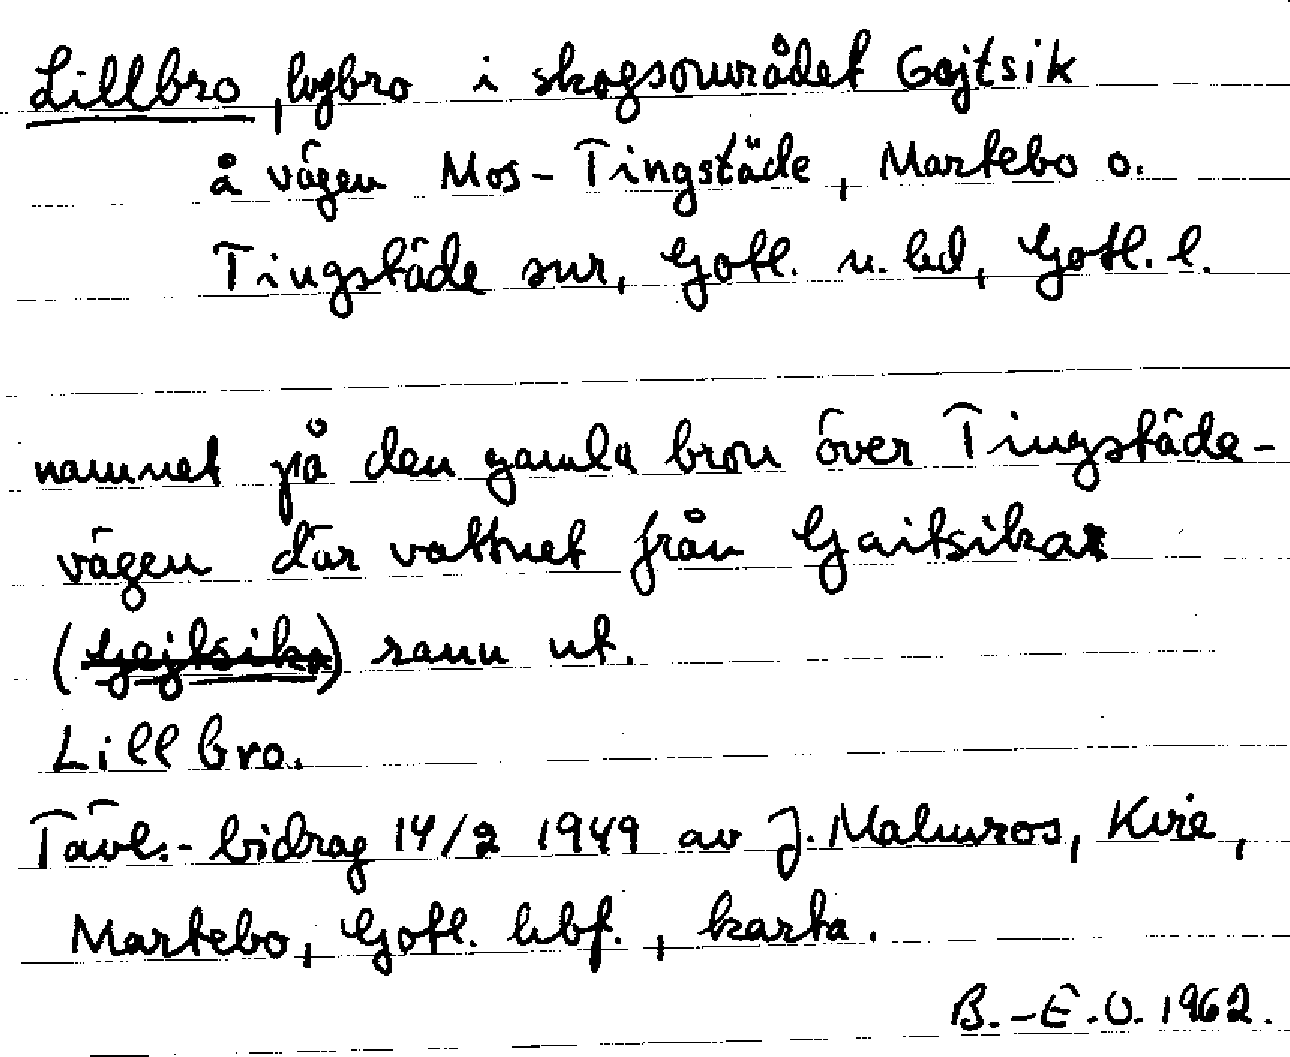 Lillbro, lvgbro i skogsområdet Gajtsik
å vägen Mos - Tingstäde, Martebo o.
Tingstäde snr, Gotl. n. hd, Gotl. l.
namnet på den gamla bron över Tingstäde-
vägen där vattnet från Gaitsika
(Gejtsika) rann ut.
Lillbro.
Tävl.- bidrag 14/2 1949 av J. Malmros, Kvie,
Martebo, Gotl. hbf., karta.
B.-E.O. 1962.